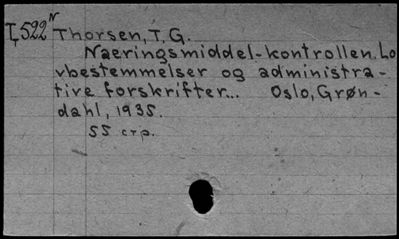 Ţ522ᴺ Thorsen, T. G.
Næringsmiddel-kontrollen. Lo
vbestemmelser og administra-
tive forskrifter... Oslo, Grøn-
dahl, 1935.
55 стр.